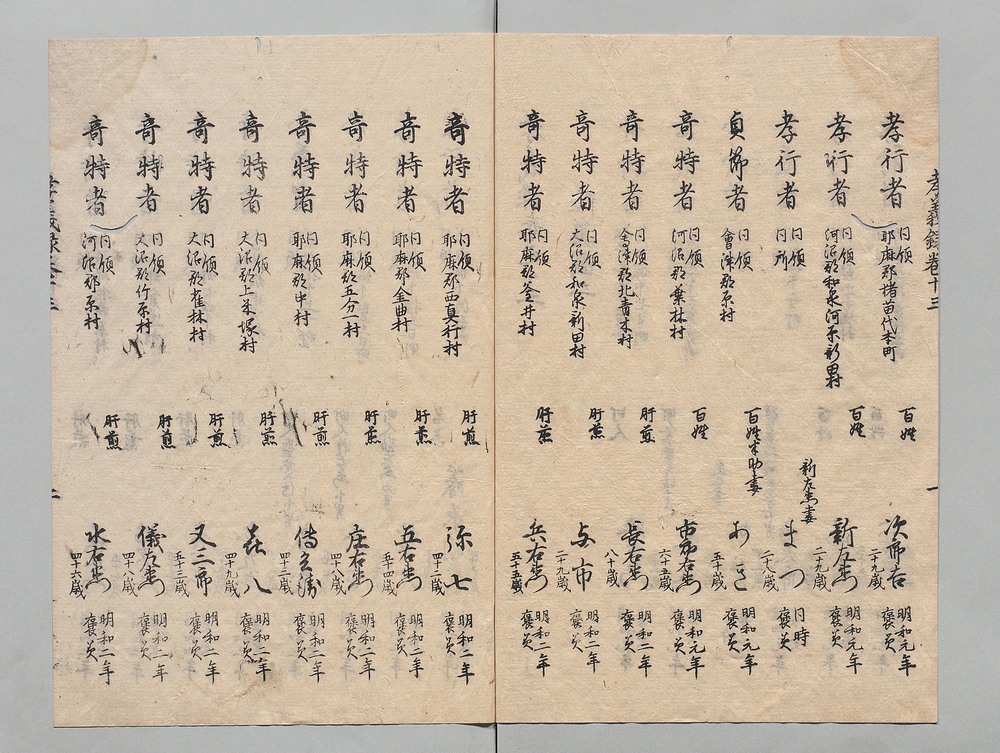 孝義録巻十三
一
孝行者 同領 耶麻郡猪苗代本町 百姓 次郎右 二十九歳 明和元年 褒美
孝行者 同領 河沼郡和泉河原新田村 百姓 新左衛門 二十九歳 明和元年 褒美
孝行者 同領 同所 新左衛門妻 まつ 二十八歳 同時 褒美
貞節者 同領 會津郡原村 百姓半助妻 あき 五十歳 明和元年 褒美
奇特者 同領 河沼郡葉林村 百姓 市郎右衛門 六十五歳 明和元年 褒美
奇特者 同領 會津郡北青木村 肝煎 長右衛門 八十歳 明和二年 褒美
奇特者 同領 大沼郡和泉新田村 肝煎 与市 二十九歳 明和二年 褒美
奇特者 同領 耶麻郡釜井村 肝煎 兵右衛門 五十五歳 明和二年 褒美
奇特者 同領 耶麻郡西真行村 肝煎 弥七 四十二歳 明和二年 褒美
奇特者 同領 耶麻郡金曲村 肝煎 五右衛門 五十四歳 明和二年 褒美
奇特者 同領 耶麻郡五分一村 肝煎 庄右衛門 四十八歳 明和二年 褒美
奇特者 同領 耶麻郡中村 肝煎 傳兵衛 四十三歳 明和二年 褒美
奇特者 同領 大沼郡上米塚村 肝煎 甚八 四十九歳 明和二年 褒美
奇特者 同領 大沼郡雀林村 肝煎 又三郎 五十三歳 明和二年 褒美
奇特者 同領 大沼郡竹原村 肝煎 儀左衛門 四十八歳 明和二年 褒美
奇特者 同領 河沼郡原村 肝煎 水右衛門 四十六歳 明和二年 褒美